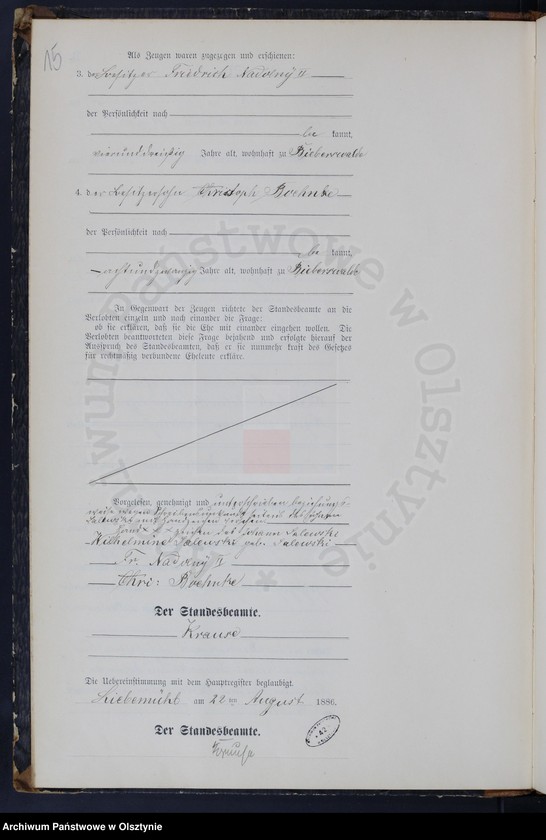 15
Als Zeugen waren zugezogen und erschienen:
3. der Besitzer Friedrich Nadolny II
der Persönlichkeit nach
be kannt,
vierunddreißig Jahre alt, wohnhaft zu Bieberswalde
4. der Besitzersohn Christoph Boehnke
der Persönlichkeit nach
be kannt,
achtundzwanzig Jahre alt, wohnhaft zu Bieberswalde
In Gegenwart der Zeugen richtete der Standesbeamte an die
Verlobten einzeln und nach einander die Frage:
ob sie erklären, daß sie die Ehe mit einander eingehen wollen. Die
Verlobten beantworteten diese Frage bejahend und erfolgte hierauf der
Ausspruch des Standesbeamten, daß er sie nunmehr kraft des Gesetzes
für rechtmäßig verbundene Eheleute erkläre.
Vorgelesen, genehmigt und unterschrieben beziehungs
weise wegen Schreibensunkunde seitens des Johann
Salewski mit Handzeichen versehen
Hand + + + zeichen des Johann Salewski
Wilhelmine Salewski geb. Salewski
Fr. Nadolny II
Chri: Boehnke
Der Standesbeamte.
Krause
Die Uebereinstimmung mit dem Hauptregister beglaubigt.
Liebemühl am 22ten August 1886.
Der Standesbeamte.
Krause
Archiwum Państwowe w Olsztynie
Archiwum Państwowe w Olsztynie